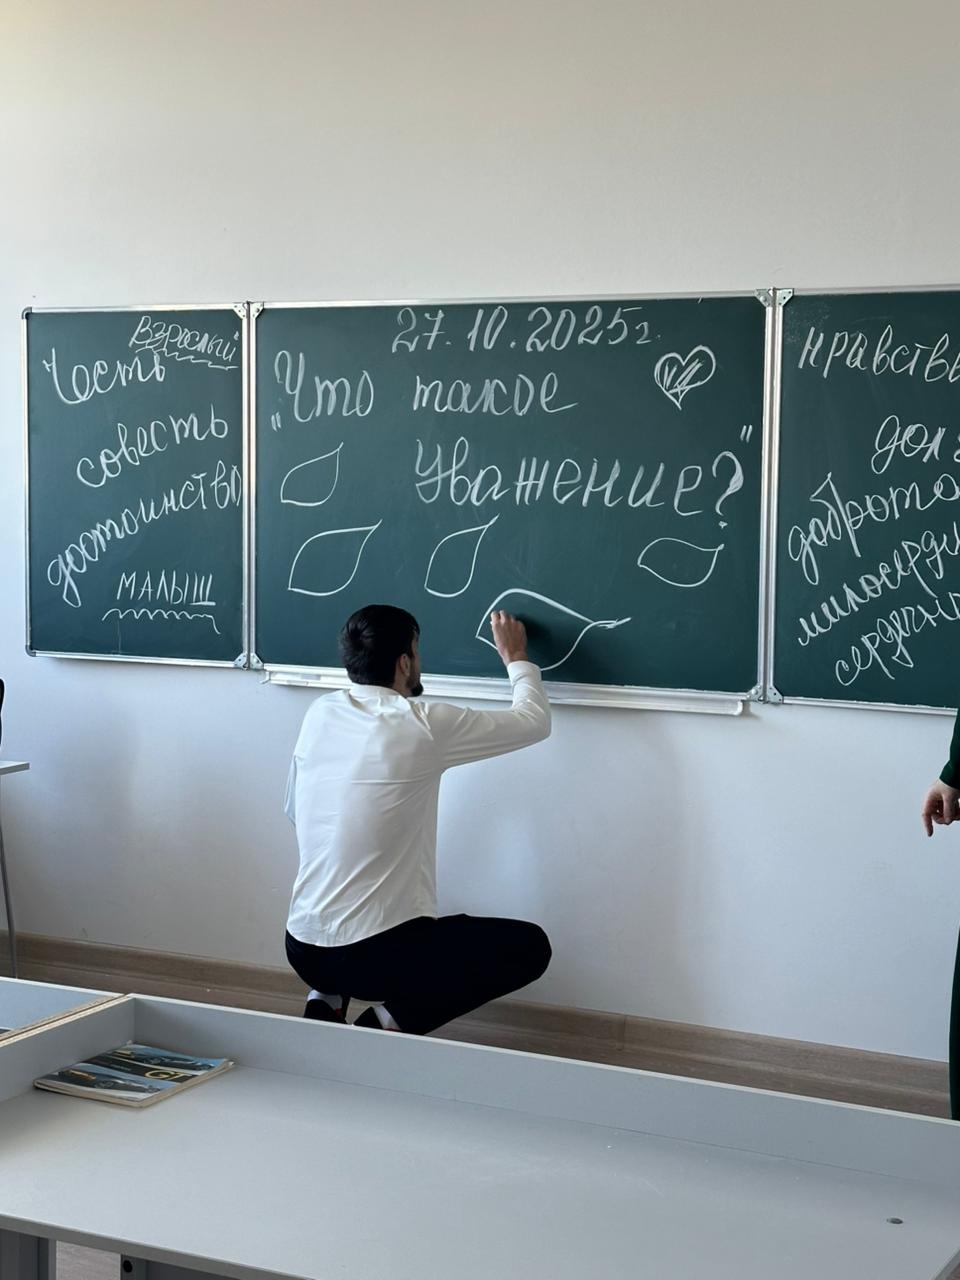 Взрослый
Честь
совесть
достоинство
МАЛЫШ
27.10.2025г.
„Что такое
Уважение?"
нравстве
дол
доброта
милосерди
сердечн
GT